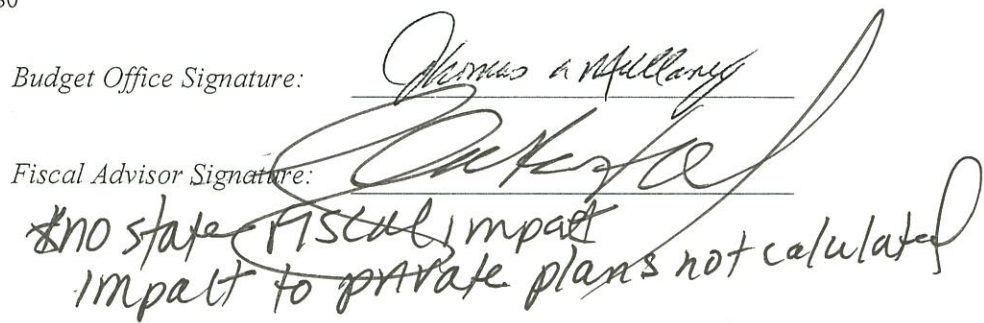 Budget Office Signature: Thomas A Mullaney
Fiscal Advisor Signature:
*no state fiscal impact
impact to private plans not calulated